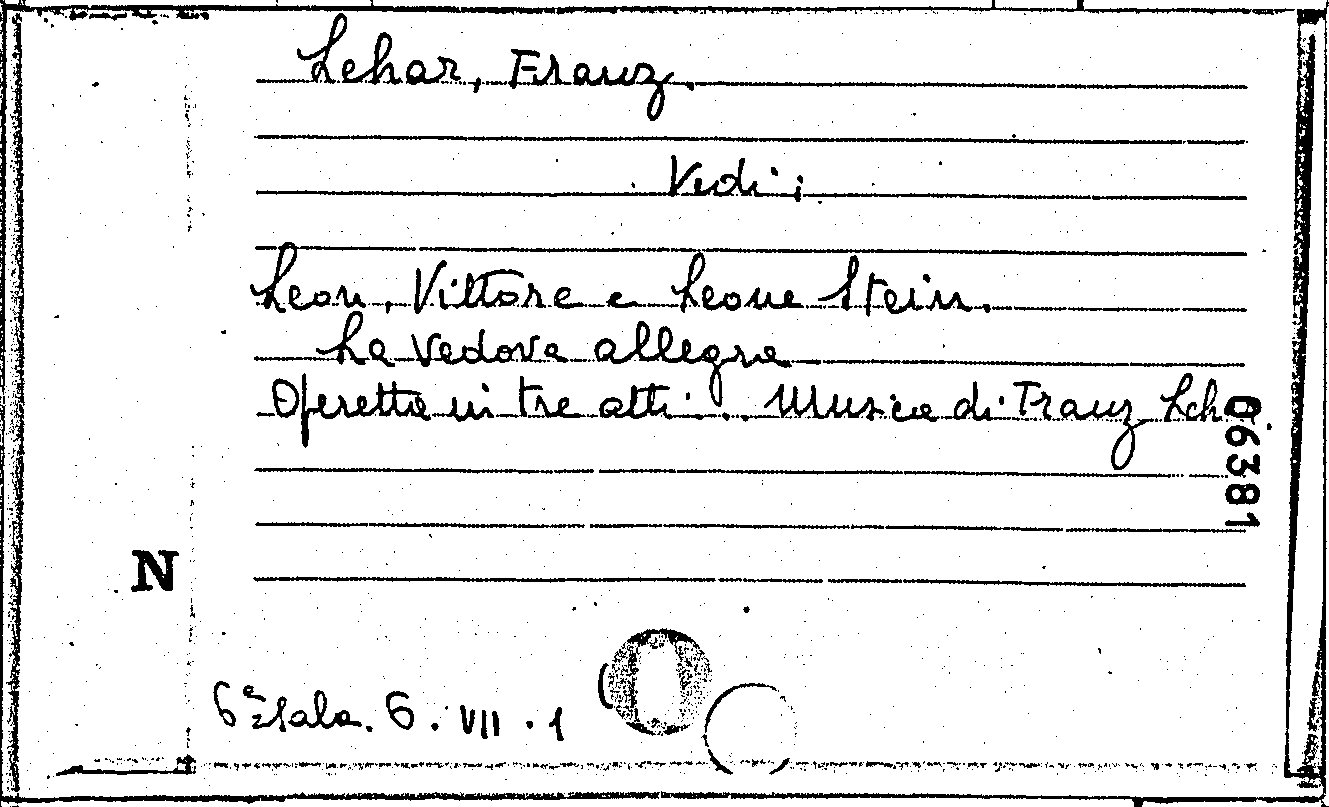 Lehar, Franz.
Vedi:
Leon, Vittore e Leone Stein.
La Vedova allegra
Operetta in tre atti... Musica di Franz Leha
06381
N
6ª Sala. 6. VII. 1